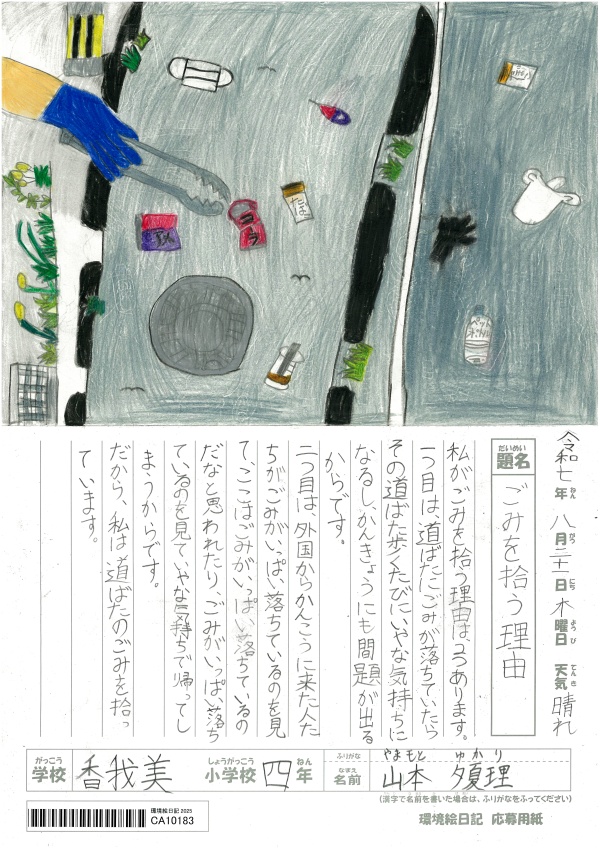 コーラ
ペットボトル
令和七年 八月二十一日 木曜日 天気 晴れ
ねん がつ にち ようび てんき
だいめい
題名 ごみを拾う理由
私がごみを拾う理由は2つあります。
一つ目は、道ばたにごみが落ちていたら
その道ばた歩くたびにいやな気持ちに
なるし、かんきょうにも問題が出る
からです。
二つ目は、外国からかんこうに来た人た
ちがごみがいっぱい落ちているのを見
て、ここはごみがいっぱい落ちているの
だなと思われたり、ごみがいっぱい落ち
ているのを見ていやな気持ちで帰ってし
まうからです。
だから、私は道ばたのごみを拾っ
ています。
がっこう しょうがっこう ねん ふりがな やまもと ゆかり
学校 香我美 小学校 四年 なまえ 名前 山本 夕夏理
(漢字で名前を書いた場合は、ふりがなをふってください)
環境絵日記 2025
CA10183
環境絵日記 応募用紙